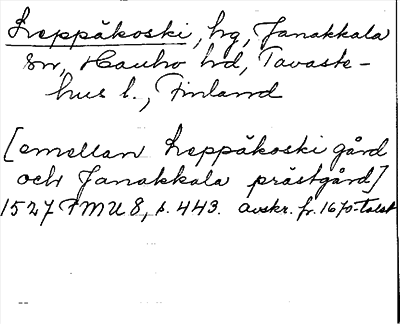 Leppäkoski, hg, Janakkala
sn, Hauho hd, Tavaste-
hus l., Finland
[emellan Leppäkoski gård
och Janakkala prästgård]
1527 FMU 8, s. 443. Avskr. fr. 1670-talet